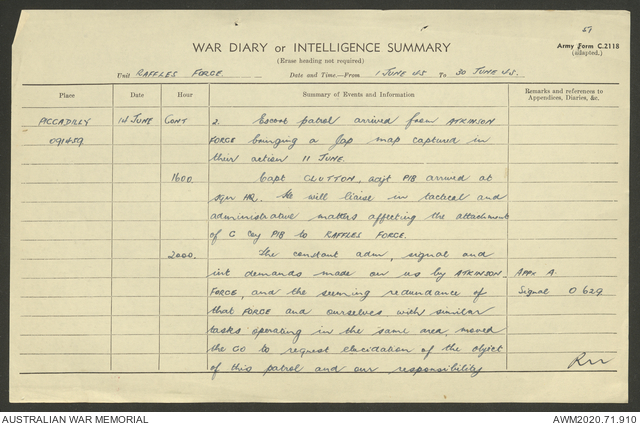 51
WAR DIARY or INTELLIGENCE SUMMARY
Army Form C.2118
(adapted.)
(Erase heading not required)
Unit RAFFLES FORCE. Date and Time—From 1 JUNE 45 To 30 JUNE 45.
Place Date Hour Summary of Events and Information Remarks and references to Appendices, Diaries, &c.
PICCADILLY 14 JUNE CONT 2. Escort patrol arrived from ATKINSON
091459 FORCE bringing a Jap map captured in
their action 11 JUNE.
1600. Capt CLUTTON, adjt PIB arrived at
sqn HQ. He will liaise in tactical and
administrative matters affecting the attachment
of C Coy PIB to RAFFLES FORCE.
2000. The constant adm, signal and
int demands made on us by ATKINSON Appx A.
FORCE, and the seeming redundance of Signal O 629
that FORCE and ourselves with similar
tasks operating in the same area, moved
the CO to request elucidation of the object
of this patrol and our responsibility
AUSTRALIAN WAR MEMORIAL AWM2020.71.910